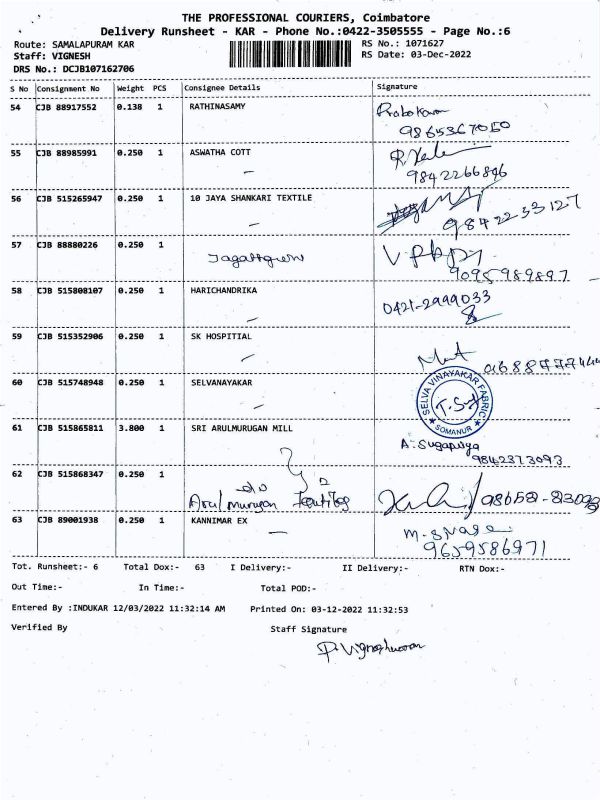 THE PROFESSIONAL COURIERS, Coimbatore
Delivery Runsheet - KAR - Phone No.:0422-3505555 - Page No.:6
Route: SAMALAPURAM KAR RS No.: 1071627
Staff: VIGNESH RS Date: 03-Dec-2022
DRS No.: DCJB107162706
S No Consignment No Weight PCS Consignee Details Signature
54 CJB 88917552 0.138 1 RATHINASAMY
9865367050
55 CJB 88985991 0.250 1 ASWATHA COTT
9842266846
56 CJB 515265947 0.250 1 10 JAYA SHANKARI TEXTILE
98422 33127
57 CJB 88880226 0.250 1
9095989897
58 CJB 515808107 0.250 1 HARICHANDRIKA 0421-2999033
59 CJB 515352906 0.250 1 SK HOSPITIAL
60 CJB 515748948 0.250 1 SELVANAYAKAR
SELVA VINAYAKAR FABRIC
SOMANUR
61 CJB 515865811 3.800 1 SRI ARULMURUGAN MILL
A. Sugapriya
9842373093
62 CJB 515868347 0.250 1
Arul murugan Textiles
63 CJB 89001938 0.250 1 KANNIMAR EX
9659586971
Tot. Runsheet:- 6 Total Dox:- 63 I Delivery:- II Delivery:- RTN Dox:-
Out Time:- In Time:- Total POD:-
Entered By :INDUKAR 12/03/2022 11:32:14 AM Printed On: 03-12-2022 11:32:53
Verified By Staff Signature
P. Vigneshwaran